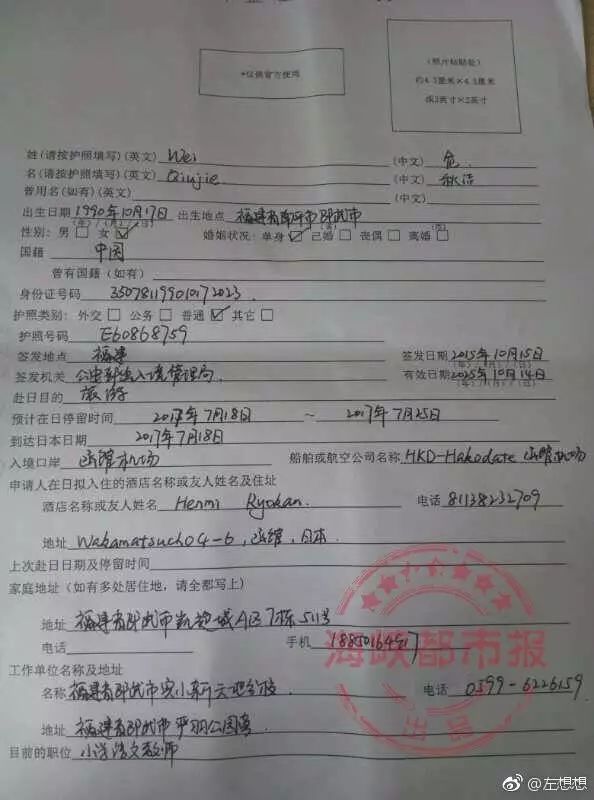 *仅供官方使用
(照片粘贴处)
约4.5厘米×4.5厘米
或2英寸×2英寸
姓(请按护照填写)(英文) Wei (中文) 危
名(请按护照填写)(英文) Qiujie (中文) 秋洁
曾用名(如有)(英文) (中文)
出生日期 1990年10月17日 出生地点 福建省南平市邵武市
(年)/(月)/(日) (省) (市)
性别: 男□ 女☑ 婚姻状况: 单身☑ 已婚□ 丧偶□ 离婚□
国籍 中国
曾有国籍 (如有)
身份证号码 350781199010172023
护照类别: 外交□ 公务□ 普通☑ 其它□
护照号码 E60868759
签发地点 福建 签发日期 2015年10月15日
(年)/(月)/(日)
签发机关 公安部出入境管理局 有效日期 2025年10月14日
(年)/(月)/(日)
赴日目的 旅游
预计在日停留时间 2017年7月18日 ~ 2017年7月25日
到达日本日期 2017年7月18日
入境口岸 函馆机场 船舶或航空公司名称 HKD-Hakodate 函馆机场
申请人在日拟入住的酒店名称或友人姓名及住址
酒店名称或友人姓名 Henmi Ryokan 电话 81138232709
地址 Wakamatsucho 4-6, 函馆, 日本
上次赴日日期及停留时间
家庭地址 (如有多处居住地, 请全部写上)
地址 福建省邵武市凯旋城A区7栋511号
电话 手机
海峡都市报
出品
工作单位名称及地址
名称 福建省邵武市实小新天地分校 电话 0599-6226159
地址 福建省邵武市严羽公园旁
目前的职位 小学语文教师
@左想想